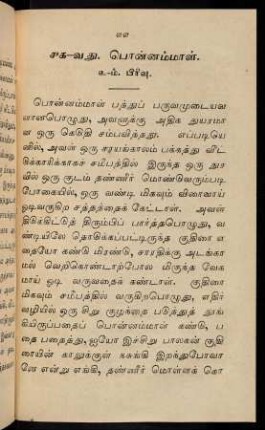 ௭௭
௪௧-வது. பொன்னம்மாள்.
உ-ம். பிரிவு.
பொன்னம்மாள் பத்துப் பருவமுடையவ
ளானபொழுது, அவளுக்கு அதிக துயரமா
ன ஒரு கெடுதி சம்பவித்தது. எப்படியெ
னில், அவள் ஒரு சாயங்காலம் பக்கத்து விட்
டுக்காரிக்காகச் சமீபத்தில் இருந்த ஒரு துர
வில் ஒரு குடம் தண்ணீர் மொண்டுவரும்படி
போகையில், ஒரு வண்டி மிகவும் விரைவாய்
ஓடிவருகிற சத்தத்தைக் கேட்டாள். அவள்
திடுக்கிட்டுத் திரும்பிப் பார்த்தபொழுது, வ
ண்டியிலே தொடுக்கப்பட்டிருந்த குதிரை எ
தையோ கண்டு மிரண்டு, சாரதிக்கு அடங்கா
மல் வெறிகொண்டாற்போல மிகுந்த வேக
மாய் ஓடி வருவதைக் கண்டாள். குதிரை
மிகவும் சமீபத்தில் வருகிறபொழுது, எதிர்
வழியில் ஒரு சிறு குழந்தை படுத்துத் தூங்
கியிருப்பதைப் பொன்னம்மாள் கண்டு, ப
தை பதைத்து, ஐயோ இச்சிறு பாலகன் குதி
ரையின் காலுக்குள் நசுங்கி இறந்துபோவா
னே என்று எங்கி, தண்ணீர் மொள்ளக் கொ